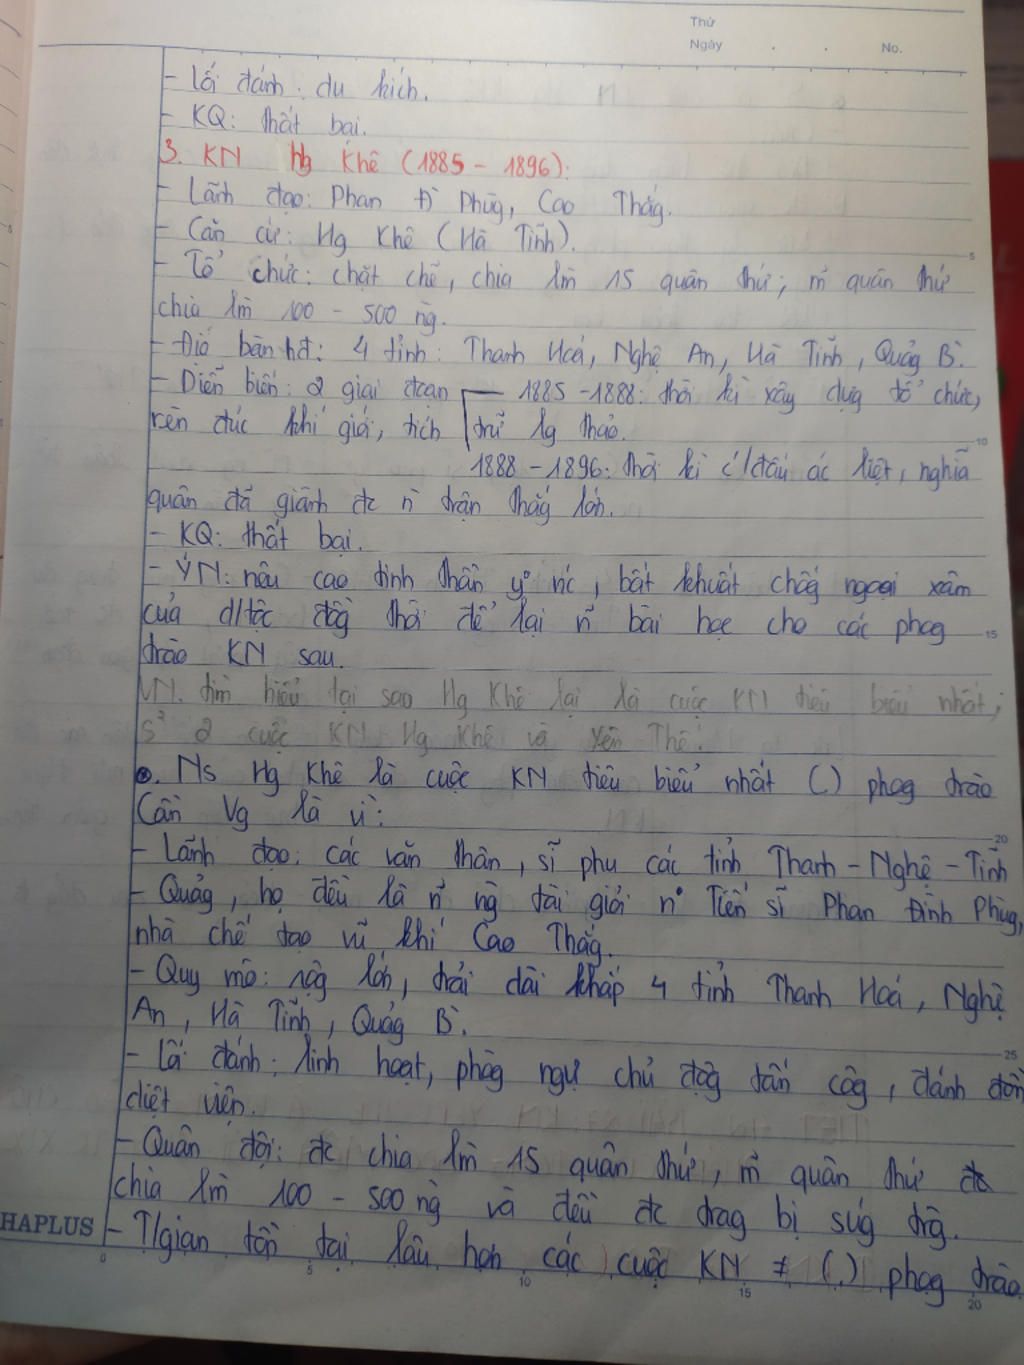 Thứ
Ngày . . No.
- Lối đánh: du kích.
- KQ: thất bại.
3. KN Hg Khê (1885 - 1896):
- Lãnh đạo: Phan Đ Phùg, Cao Thắg.
- Căn cứ: Hg Khê (Hà Tĩnh).
- Tổ chức: chặt chẽ, chia lm̀ 15 quân thứ; m̃ quân thứ
chia lm̀ 100 - 500 ng̀.
- Địa bàn hđ: 4 tỉnh: Thanh Hoá, Nghệ An, Hà Tĩnh, Quảg B̀.
- Diễn biến: 2 giai đoạn 1885 - 1888: thời kì xây dựg tổ chức,
rèn đúc khí giới, tích trữ lg thảo.
1888 - 1896: thời kì c/đấu ác liệt, nghĩa
quân đã giành đc ñ trận thắg lớn.
- KQ: thất bại.
- YN: nêu cao tinh thần y° nc, bất khuất chốg ngoại xâm
của d/tộc đồg thời để lại ñ bài học cho các phog
trào KN sau.
VN: tìm hiểu tại sao Hg Khê lại là cuộc KN tiêu biểu nhất;
s² 2 cuộc KN Hg Khê và Yên Thế.
Ns Hg Khê là cuộc KN tiêu biểu nhất (.) phog trào
Cần Vg là vì:
- Lãnh đạo: các văn thân, sĩ phu các tỉnh Thanh - Nghệ - Tĩnh
- Quảg, họ đều là ñ ng̀ tài giỏi n° Tiến sĩ Phan Đình Phùg,
nhà chế tạo vũ khí Cao Thắg.
- Quy mô: rộg lớn, trải dài khắp 4 tỉnh Thanh Hoá, Nghệ
An, Hà Tĩnh, Quảg B̀.
- Lối đánh: linh hoạt, phòg ngự chủ độg tấn côg, đánh đồn
diệt viện.
- Quân đội: đc chia lm̀ 15 quân thứ, m̃ quân thứ đc
chia lm̀ 100 - 500 ng̀ và đều đc trag bị súg trg.
HAPLUS - T/gian tồn tại lâu hơn các cuộc KN ≠ (.) phog trào